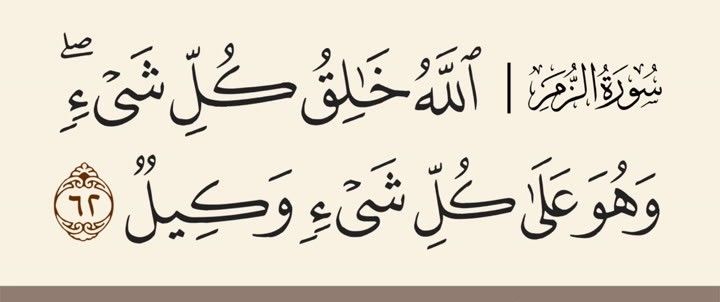 سُورَةُ الزُّمَرِ | ٱللَّهُ خَـٰلِقُ كُلِّ شَىْءٍۢ ۖ
وَهُوَ عَلَىٰ كُلِّ شَىْءٍۢ وَكِيلٌۭ ٦٢